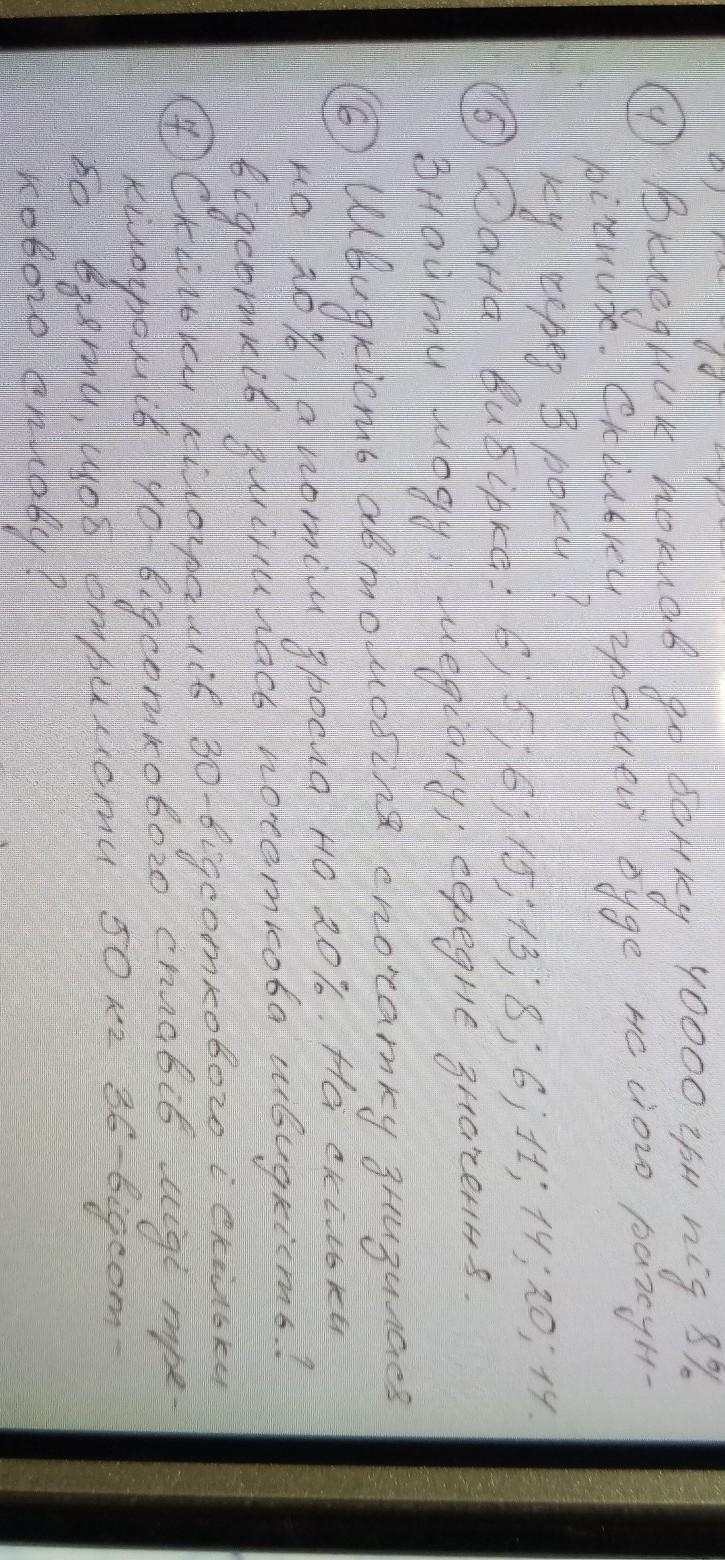 ④ Вкладник поклав до банку 40000 грн під 8%
річних. Скільки грошей буде на його рахун-
ку через 3 роки?
⑤ Дана вибірка: 6; 5; 6; 15; 13; 8; 6; 11; 14; 20; 14.
Знайти моду; медіану; середнє значення.
⑥ Швидкість автомобіля спочатку знизилася
на 20%, а потім зросла на 20%. На скільки
відсотків змінилась початкова швидкість?
⑦ Скільки кілограмів 30-відсоткового і скільки
кілограмів 40-відсоткового сплавів міді тре-
ба взяти, щоб отримати 50 кг 36-відсот-
кового сплаву?